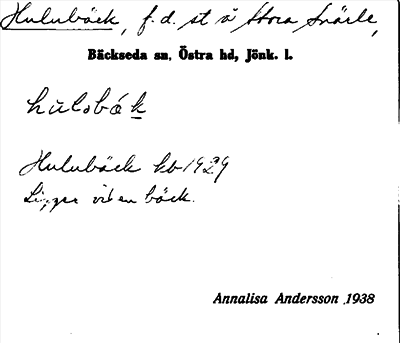 Hulubäck, f.d. st å Stora Snärle,
Bäckseda sn, Östra hd, Jönk. l.
hulobák
Hulubäck kb 1929
Ligger vid en bäck.
Annalisa Andersson 1938